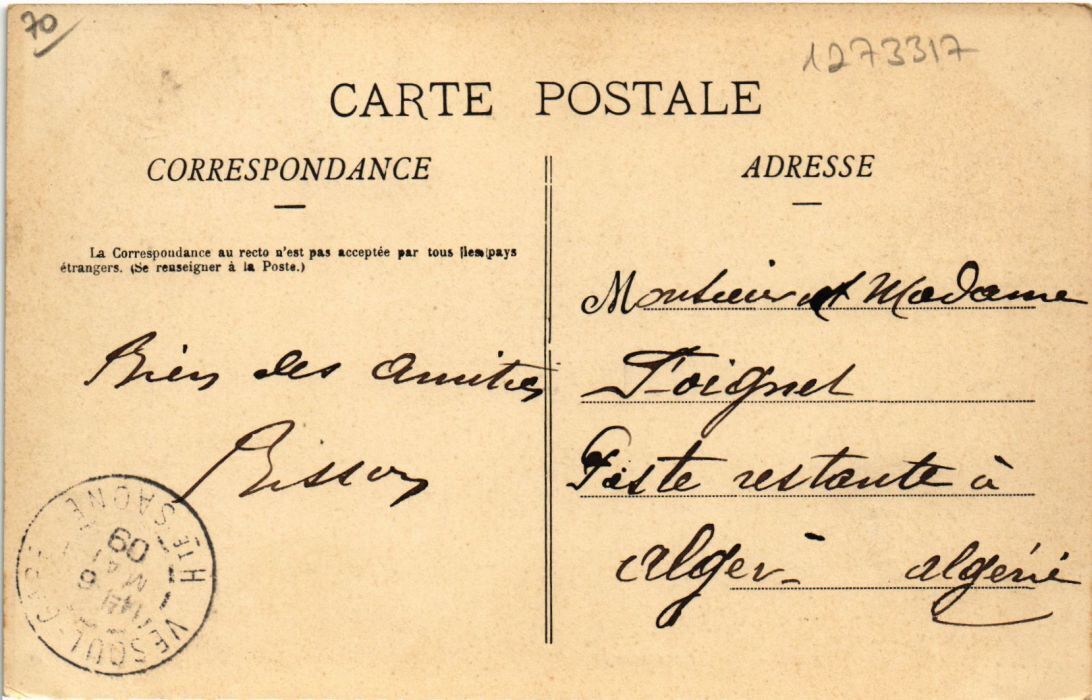 70
1273317
CARTE POSTALE
CORRESPONDANCE
ADRESSE
La Correspondance au recto n'est pas acceptée par tous les pays
étrangers. (Se renseigner à la Poste.)
Bien des amitiés
Bisson
Monsieur et Madame
Foignet
Poste restante à
Alger - Algérie
VESOUL-GARE
HTE SAONE
6
09